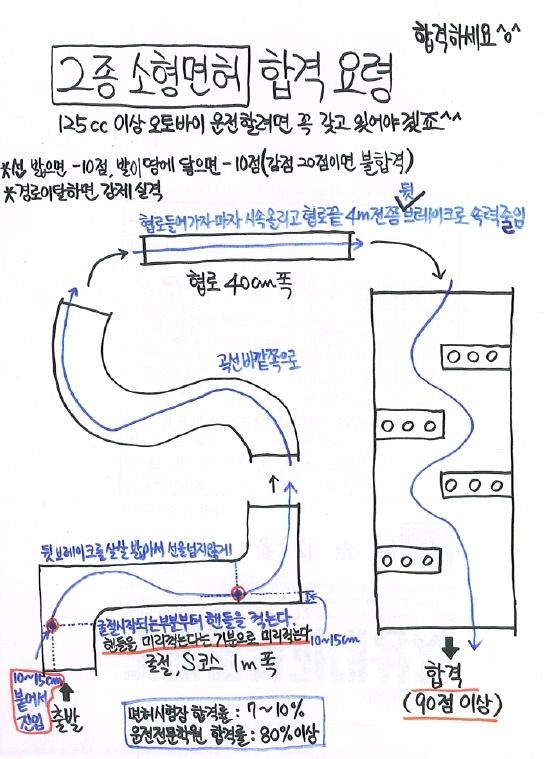 합격하세요^o^
2종 소형면허 합격 요령
125cc 이상 오토바이 운전할려면 꼭 갖고 있어야 겠죠^^
*선 밟으면 -10점, 발이 땅에 닿으면 -10점(감점 20점이면 불합격)
*경로이탈하면 강제 실격
뒷
협로들어가자 마자 시속올리고 협로끝 4m전쯤 브레이크로 속력줄임
협로 40cm폭
곡선바깥쪽으로
뒷브레이크를 살살 밟아서 선을넘지않게
굴절시작되는부분부터 핸들을 꺽는다
핸들을 미리꺽는다는 기분으로 미리꺽는다
10~15cm
굴절, S코스 1m 폭
10~15cm
붙여서
진입
출발
합격
(90점 이상)
면허시험장 합격률: 7~10%
운전전문학원 합격률: 80%이상